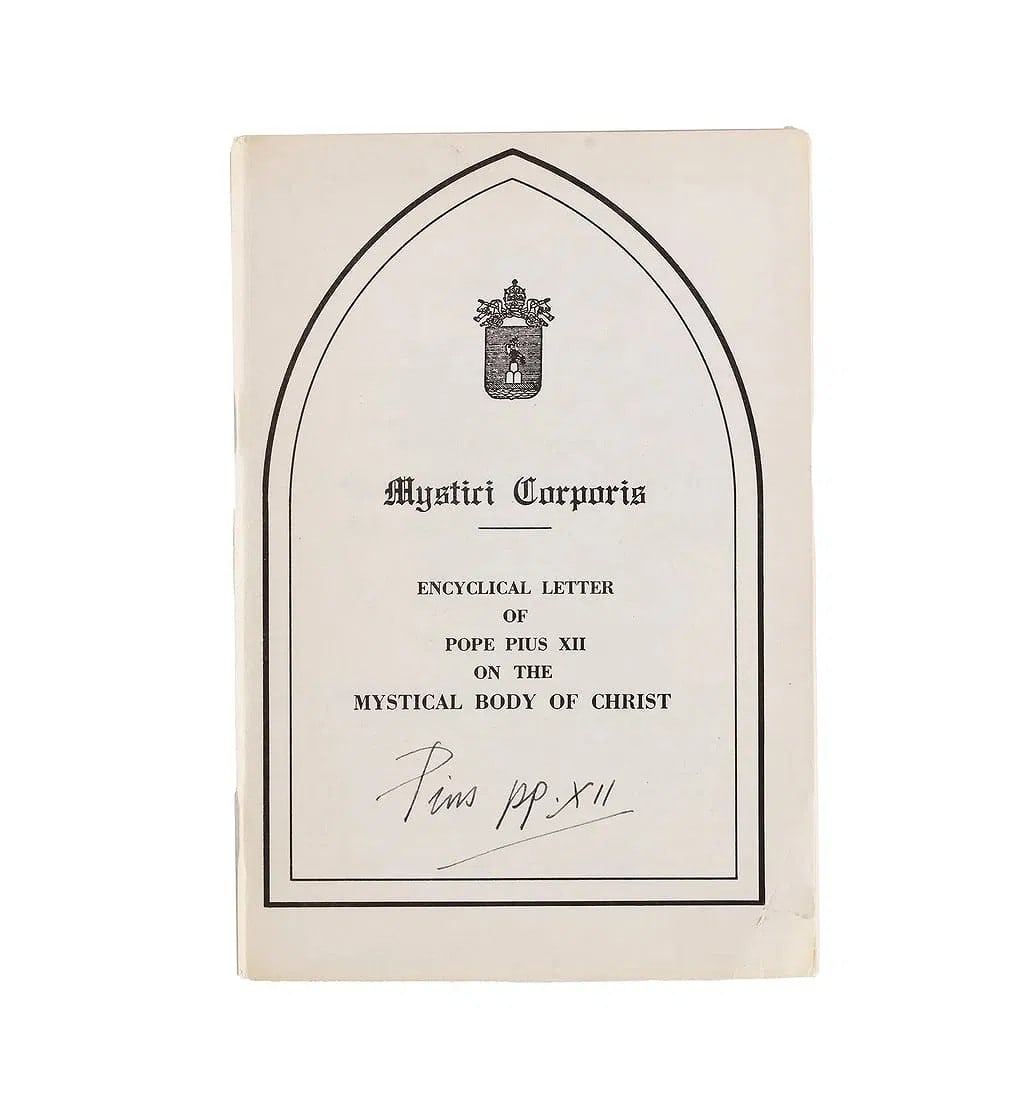 Mystici Corporis
ENCYCLICAL LETTER
OF
POPE PIUS XII
ON THE
MYSTICAL BODY OF CHRIST
Pius pp. XII